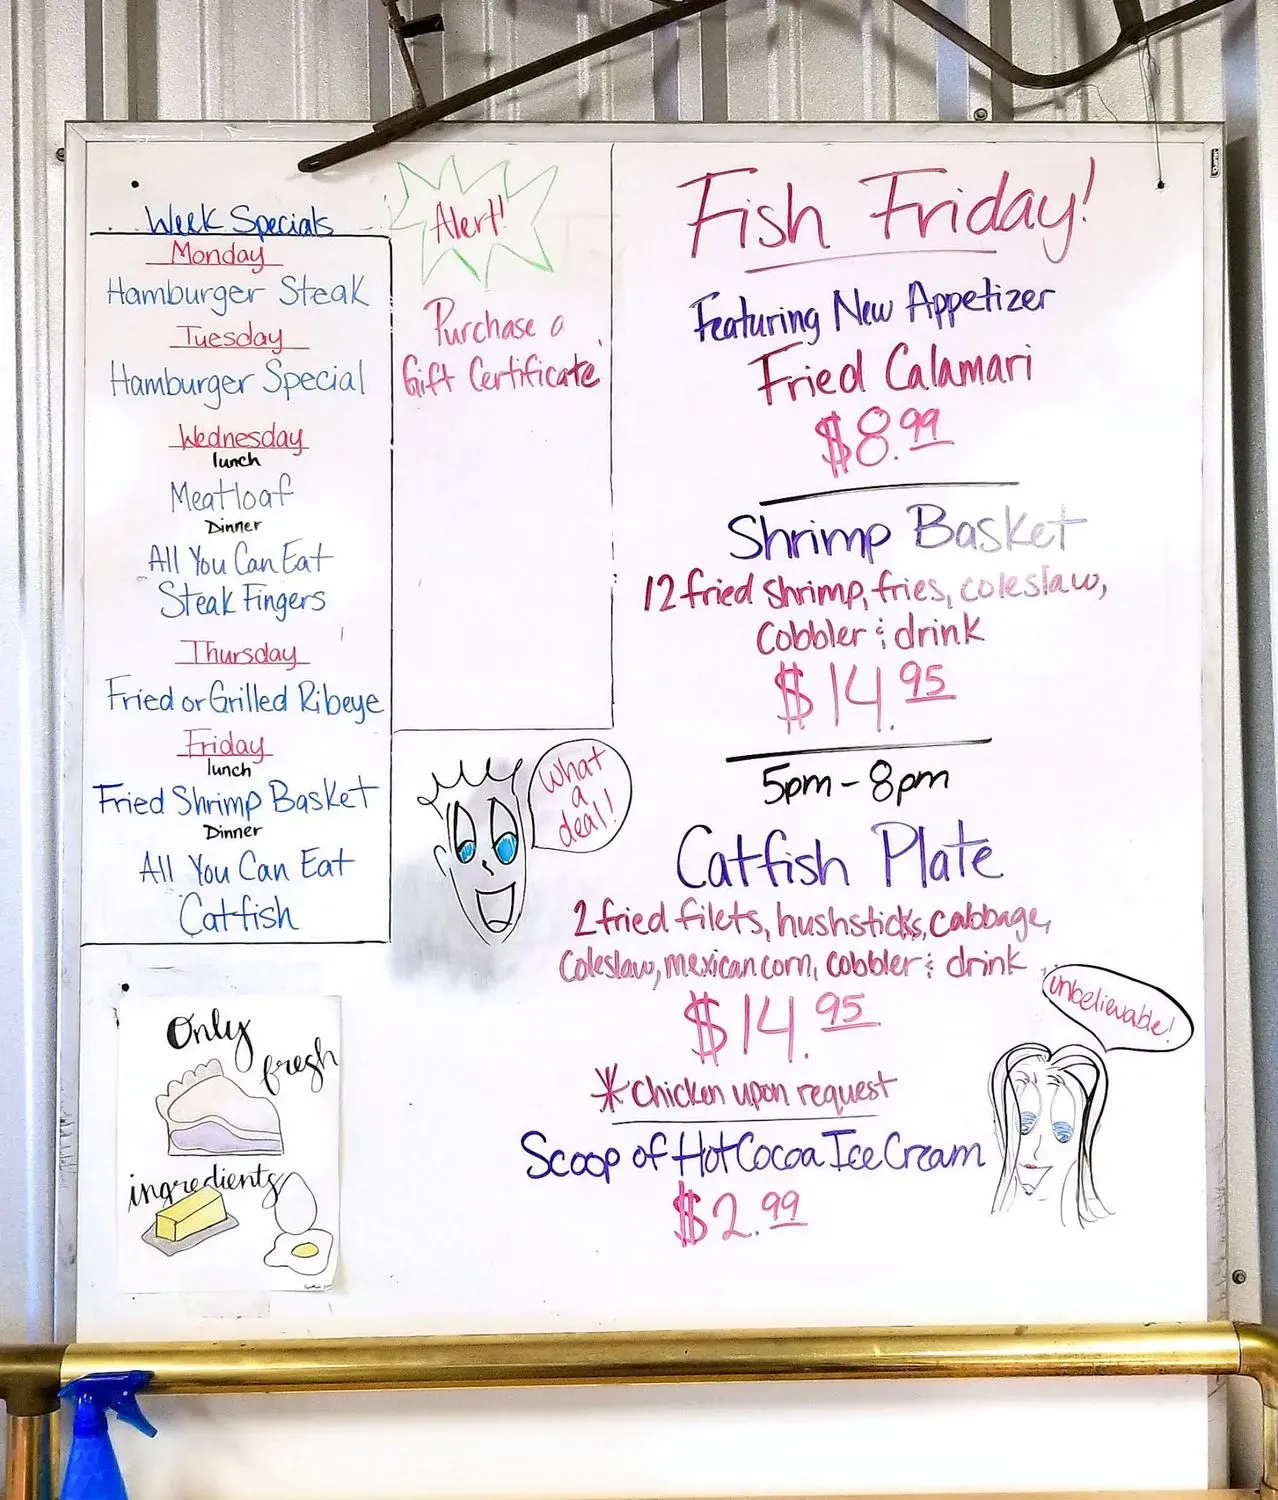 Week Specials
Monday
Hamburger Steak
Tuesday
Hamburger Special
Wednesday
lunch
Meatloaf
Dinner
All You Can Eat
Steak Fingers
Thursday
Fried or Grilled Ribeye
Friday
lunch
Fried Shrimp Basket
Dinner
All You Can Eat
Catfish
Alert!
Purchase a
Gift Certificate
What
a
deal!
Fish Friday!
Featuring New Appetizer
Fried Calamari
$8.99
Shrimp Basket
12 fried shrimp, fries, coleslaw,
Cobbler & drink
$14.95
5pm - 8pm
Catfish Plate
2 fried filets, hushsticks, cabbage,
Coleslaw, mexican corn, cobbler & drink
$14.95
*Chicken upon request
Scoop of Hot Cocoa Ice Cream
$2.99
unbelievable!
Only
fresh
ingredients